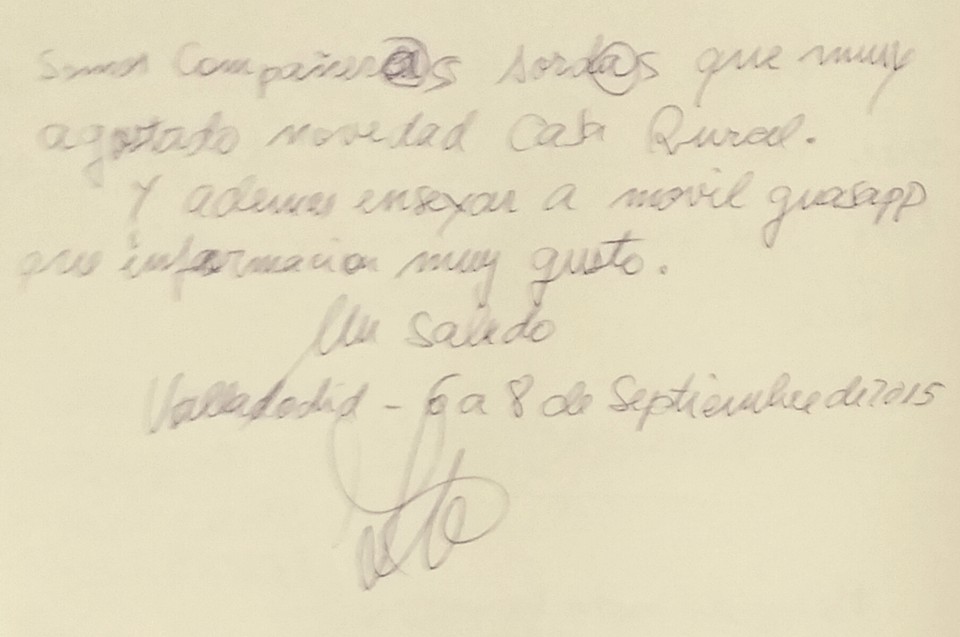 Somos Compañer@s sord@s que muy
agustado novedad Casa Rural.
Y ademas ensexar a movil guasapp
que informacion muy gusto.
Un Saludo
Valladodid - 6 a 8 de Septiembre de 2015